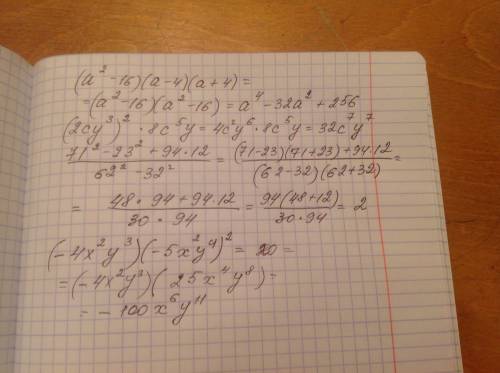 (a² -16)(a-4)(a+4)=
=(a²-16)(a²-16)=a⁴-32a²+256
(2cy³)²·8c⁵y=4c²y⁶·8c⁵y=32c⁷y⁷
(71²-23²+94·12)/(62²-32²) = ((71-23)(71+23)+94·12)/((62-32)(62+32)) =
= (48·94+94·12)/(30·94) = (94(48+12))/(30·94) = 2
(-4x²y³)(-5x²y⁴)² = 20 =
=(-4x²y³)(25x⁴y⁸)=
= -100x⁶y¹¹